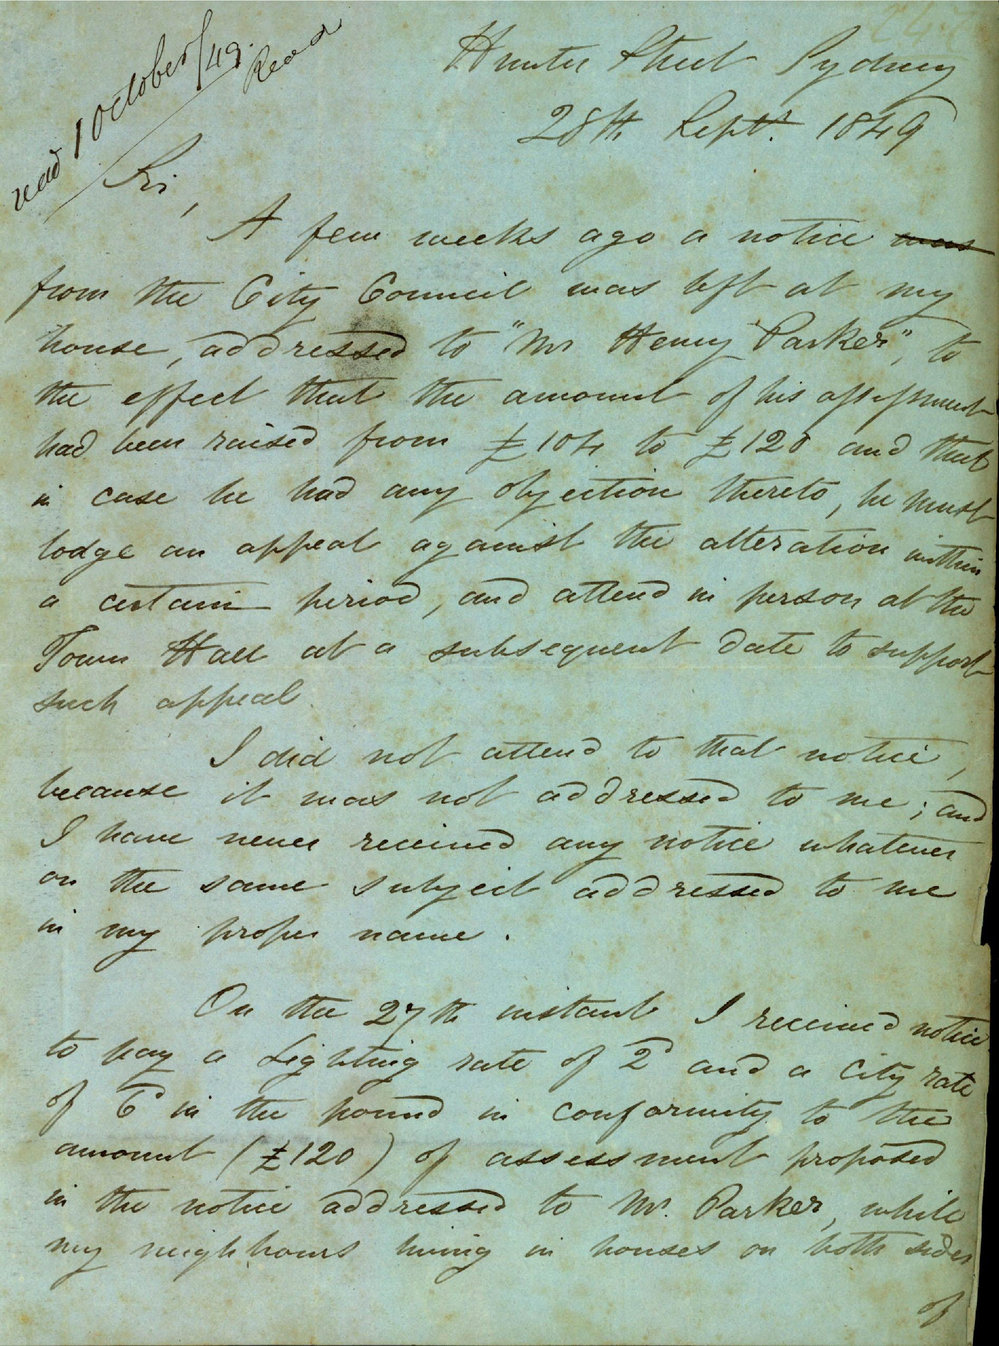 read 1 October/49.
Read
Hunter Street Sydney
28th Septr. 1849
Sir,
A few weeks ago a notice was
from the City Council was left at my
house, addressed to "Mr Henry Parker", to
the effect that the amount of his assessment
had been raised from £104 to £120 and that
in case he had any objection thereto, he must
lodge an appeal against the alteration within
a certain period, and attend in person at the
Town Hall at a subsequent date to support
such appeal.
I did not attend to that notice,
because it was not addressed to me; and
I have never received any notice whatever
on the same subject addressed to me
in my proper name.
On the 27th instant I received notice
to pay a Lighting rate of 2d and a City rate
of 6d in the pound in conformity to the
amount (£120) of assessment proposed
in the notice addressed to Mr. Parker, while
my neighbours living in houses on both sides
of